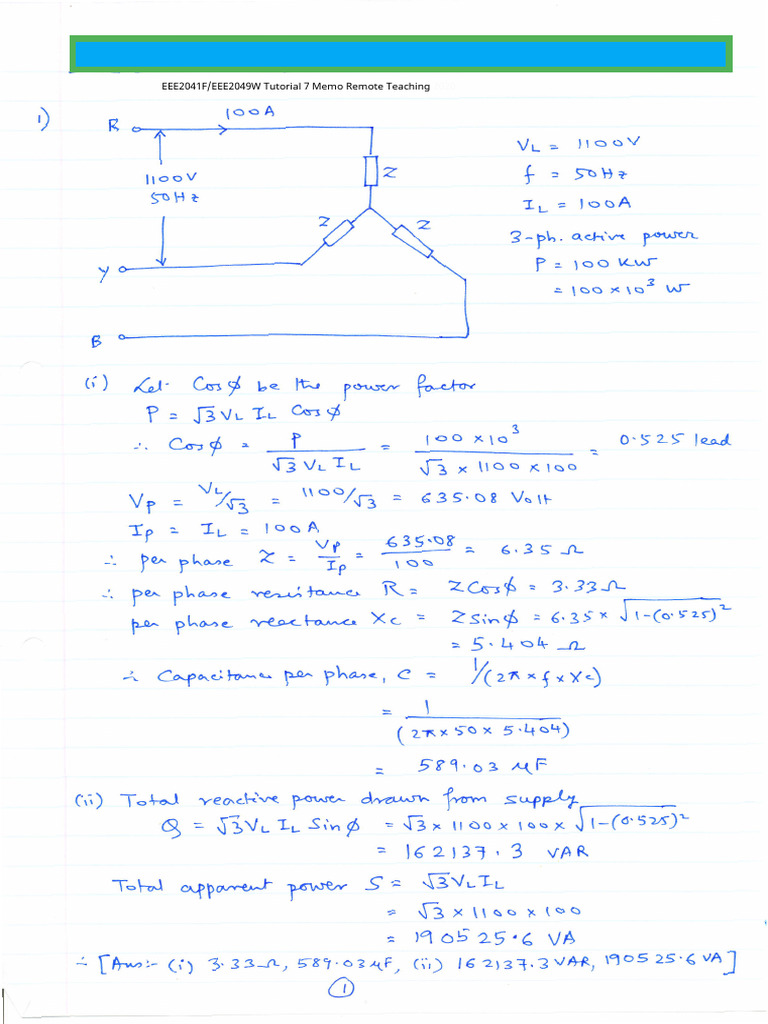 EEE2041F/EEE2049W Tutorial 7 Memo Remote Teaching
1)
100A
R
1100V
50Hz
Z
Z
Z
Y
B
VL = 1100V
f = 50Hz
IL = 100A
3-ph. active power
P = 100 KW
= 100 × 10³ W
(i) Let Cosφ be the power factor
P = √3 VL IL Cosφ
∴ Cosφ = P / √3 VL IL = 100 × 10³ / √3 × 1100 × 100 = 0.525 lead
Vp = VL/√3 = 1100/√3 = 635.08 Volt
Ip = IL = 100A
∴ per phase Z = Vp / Ip = 635.08 / 100 = 6.35 Ω
∴ per phase resistance R = Z Cosφ = 3.33 Ω
per phase reactance Xc = Z Sinφ = 6.35 × √1-(0.525)²
= 5.404 Ω
∴ Capacitance per phase, C = 1/(2π × f × Xc)
= 1 / (2π × 50 × 5.404)
= 589.03 μF
(ii) Total reactive power drawn from supply
Q = √3 VL IL Sinφ = √3 × 1100 × 100 × √1-(0.525)²
= 162137.3 VAR
Total apparent power S = √3 VL IL
= √3 × 1100 × 100
= 190525.6 VA
∴ [Ans:- (i) 3.33Ω, 589.03μF, (ii) 162137.3 VAR, 190525.6 VA]
1